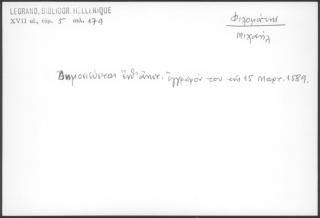 LEGRAND, BIBLIOGR. HELLENIQUE
XVII αἰ, τόμ. 5 σελ. 179
Φιλομάτης
Μιχαήλ
Δημοσιεύεται ἔγγραφόν του τῆς 15 Μαρτ. 1589.